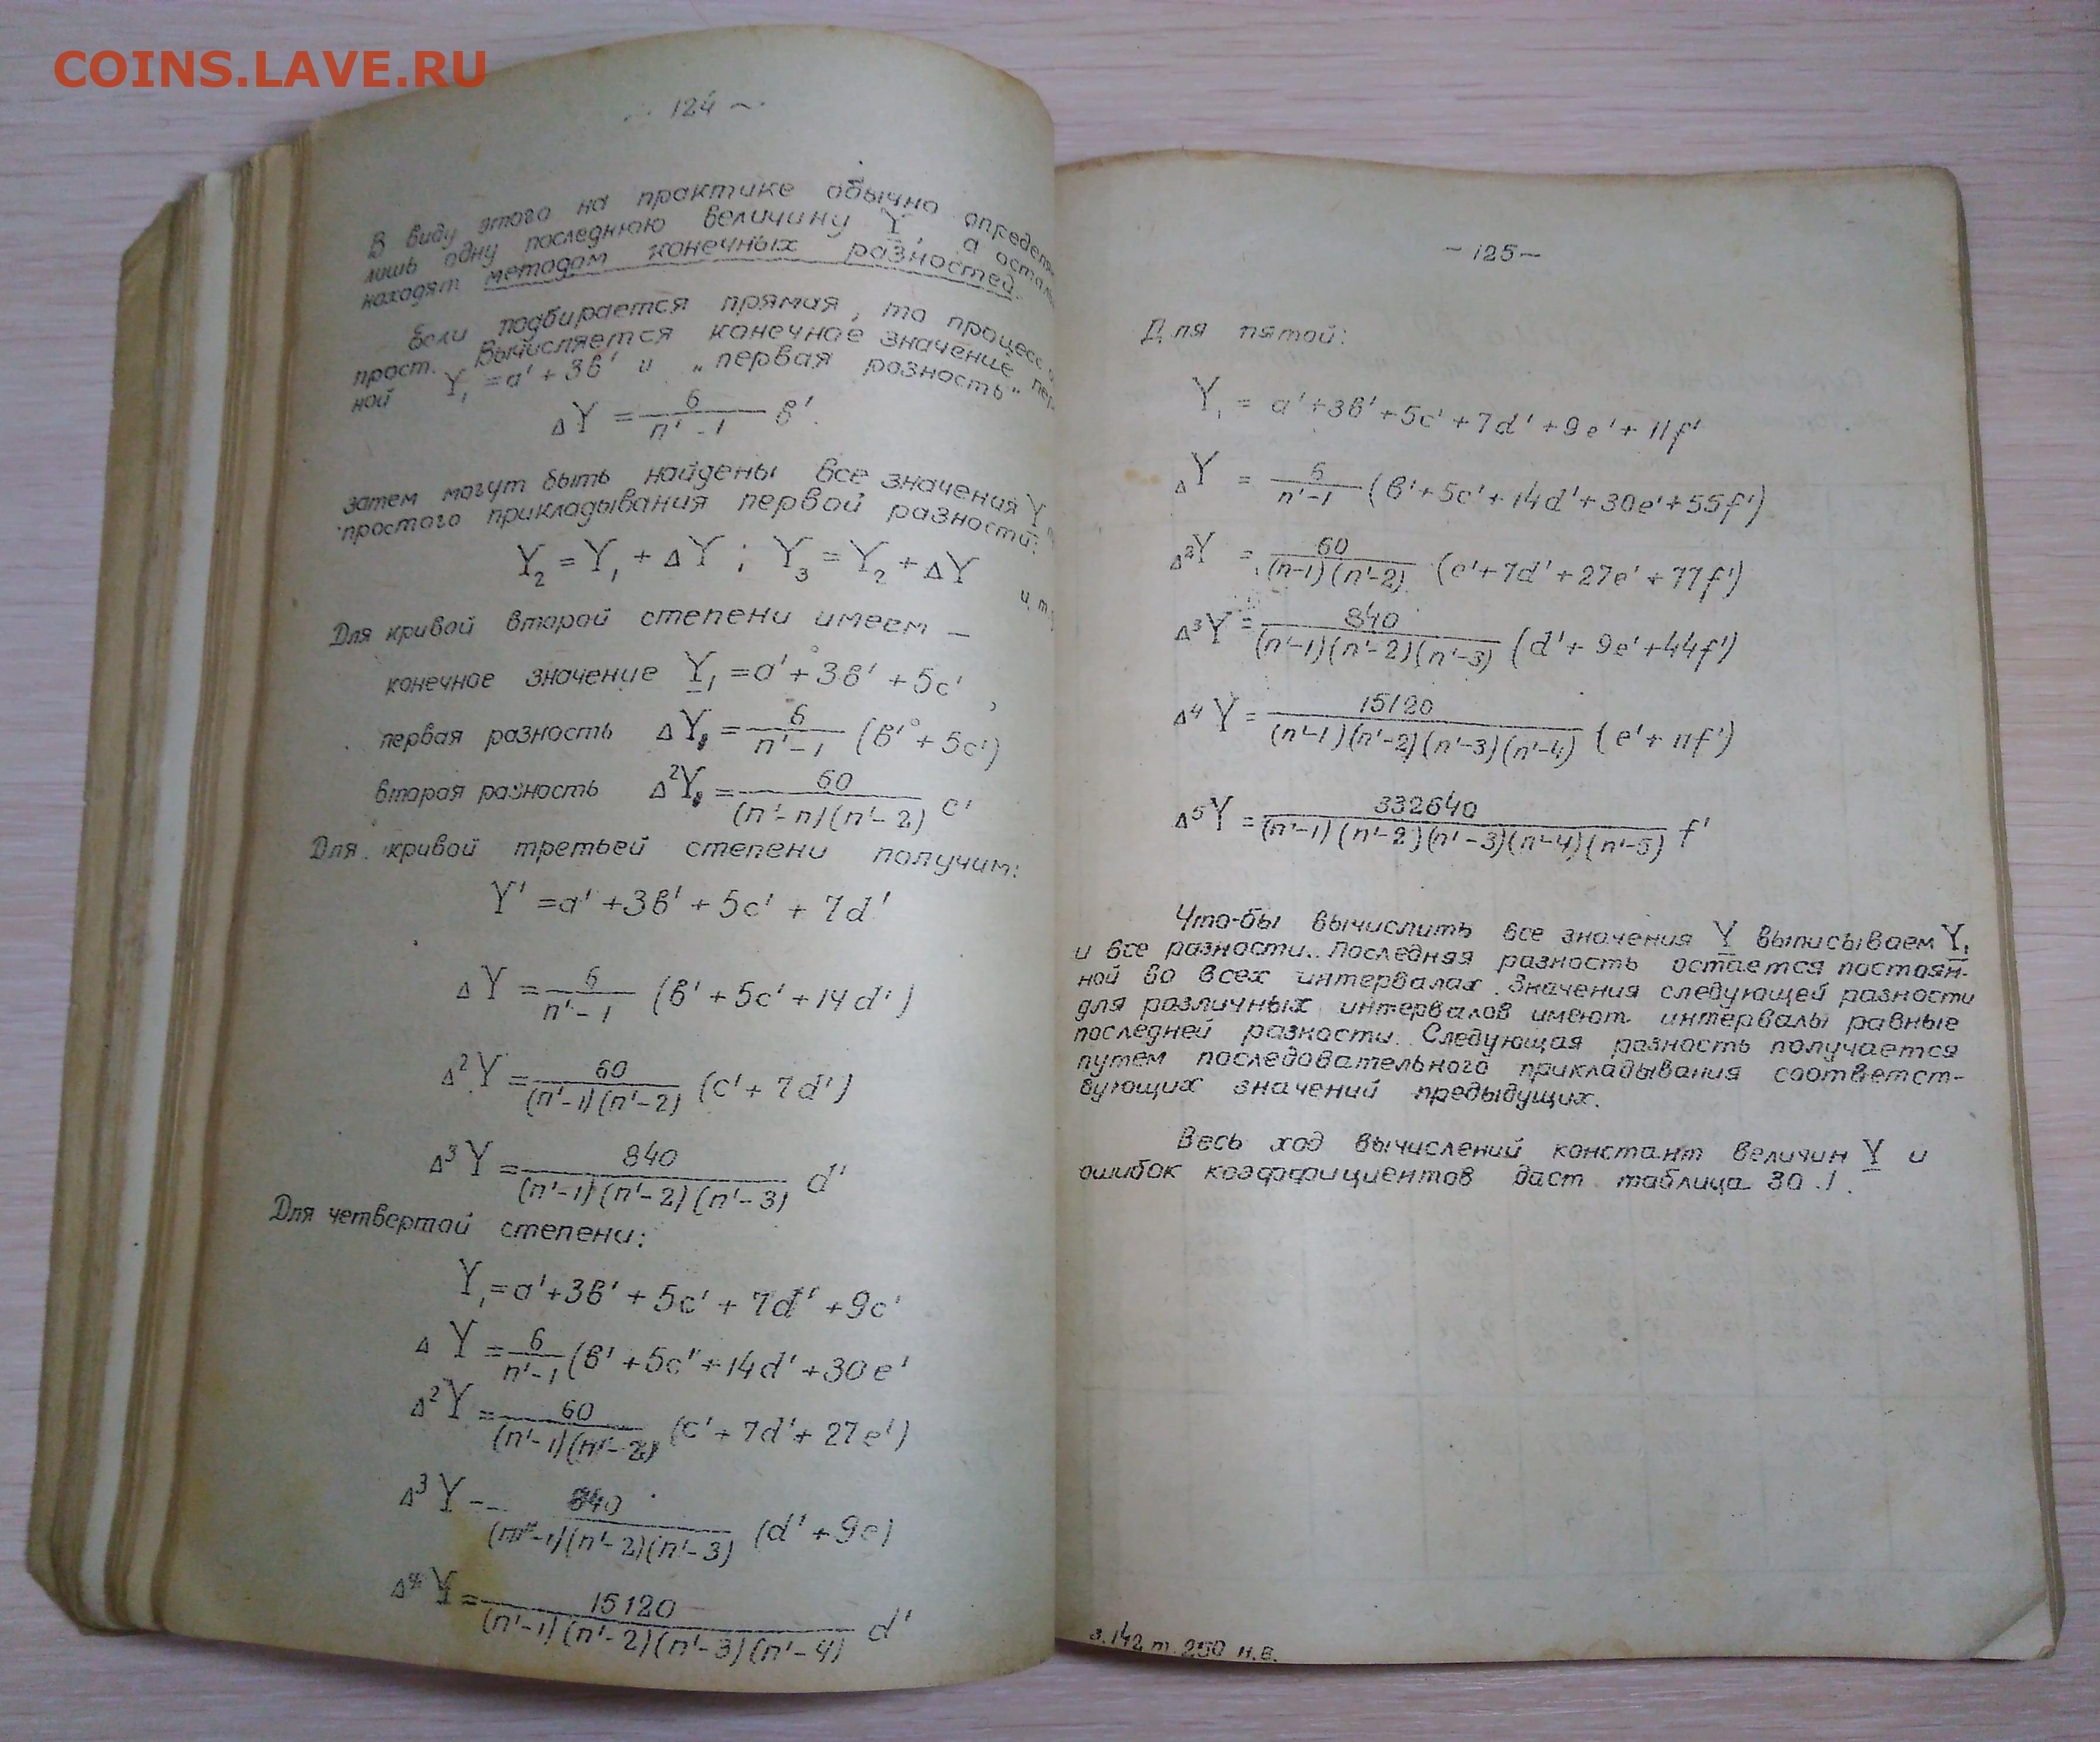 COINS.LAVE.RU
124
В виду этого на практике обычно определя
лишь одну последнюю величину Y, а осталь
находят методом конечных разностей.
Если подбирается прямая, то процесс
прост. Вычисляется конечное значение пер-
ной Y₁ = a' + 3в' и „первая разность"
ΔY = 6/(n'-1) в'.
затем могут быть найдены все значения Y
простого прикладывания первой разности:
Y₂ = Y₁ + ΔY ; Y₃ = Y₂ + ΔY
и т
Для кривой второй степени имеем –
конечное значение Y₁ = a' + 3в' + 5c',
первая разность ΔY = 6/(n'-1) (в' + 5c')
вторая разность Δ²Y = 60/((n'-n)(n'-2)) c'
Для кривой третьей степени получим:
Y' = a' + 3в' + 5c' + 7d'
ΔY = 6/(n'-1) (в' + 5c' + 14d')
Δ²Y = 60/((n'-1)(n'-2)) (c' + 7d')
Δ³Y = 840/((n'-1)(n'-2)(n'-3)) d'
Для четвертой степени:
Y₁ = a' + 3в' + 5c' + 7d' + 9c'
ΔY = 6/(n'-1) (в' + 5c'' + 14d' + 30e'
Δ²Y = 60/((n'-1)(n'-2)) (c' + 7d' + 27e')
Δ³Y -- 840/((n'-1)(n'-2)(n'-3)) (d' + 9e)
Δ⁴Y = 15120/((n'-1)(n'-2)(n'-3)(n'-4)) d'
– 125 –
Для пятой:
Y₁ = a' + 3в' + 5c' + 7d' + 9e' + 11f'
ΔY = 6/(n'-1) (в' + 5c' + 14d' + 30e' + 55f')
Δ²Y = 60/((n-1)(n'-2)) (c' + 7d' + 27e' + 77f')
Δ³Y = 840/((n'-1)(n'-2)(n'-3)) (d' + 9e' + 44f')
Δ⁴Y = 15120/((n'-1)(n'-2)(n'-3)(n'-4)) (e' + 11f')
Δ⁵Y = 332640/((n'-1)(n'-2)(n'-3)(n'-4)(n'-5)) f'
Что-бы вычислить все значения Y выписываем Y₁
и все разности. Последняя разность остается постоян-
ной во всех интервалах. Значения следующей разности
для различных интервалов имеют интервалы равные
последней разности. Следующая разность получается
путем последовательного прикладывания соответст-
вующих значений предыдущих.
Весь ход вычислений констант величин Y и
ошибок коэффициентов даст таблица 30.1.
з.142 т.250 н.в.